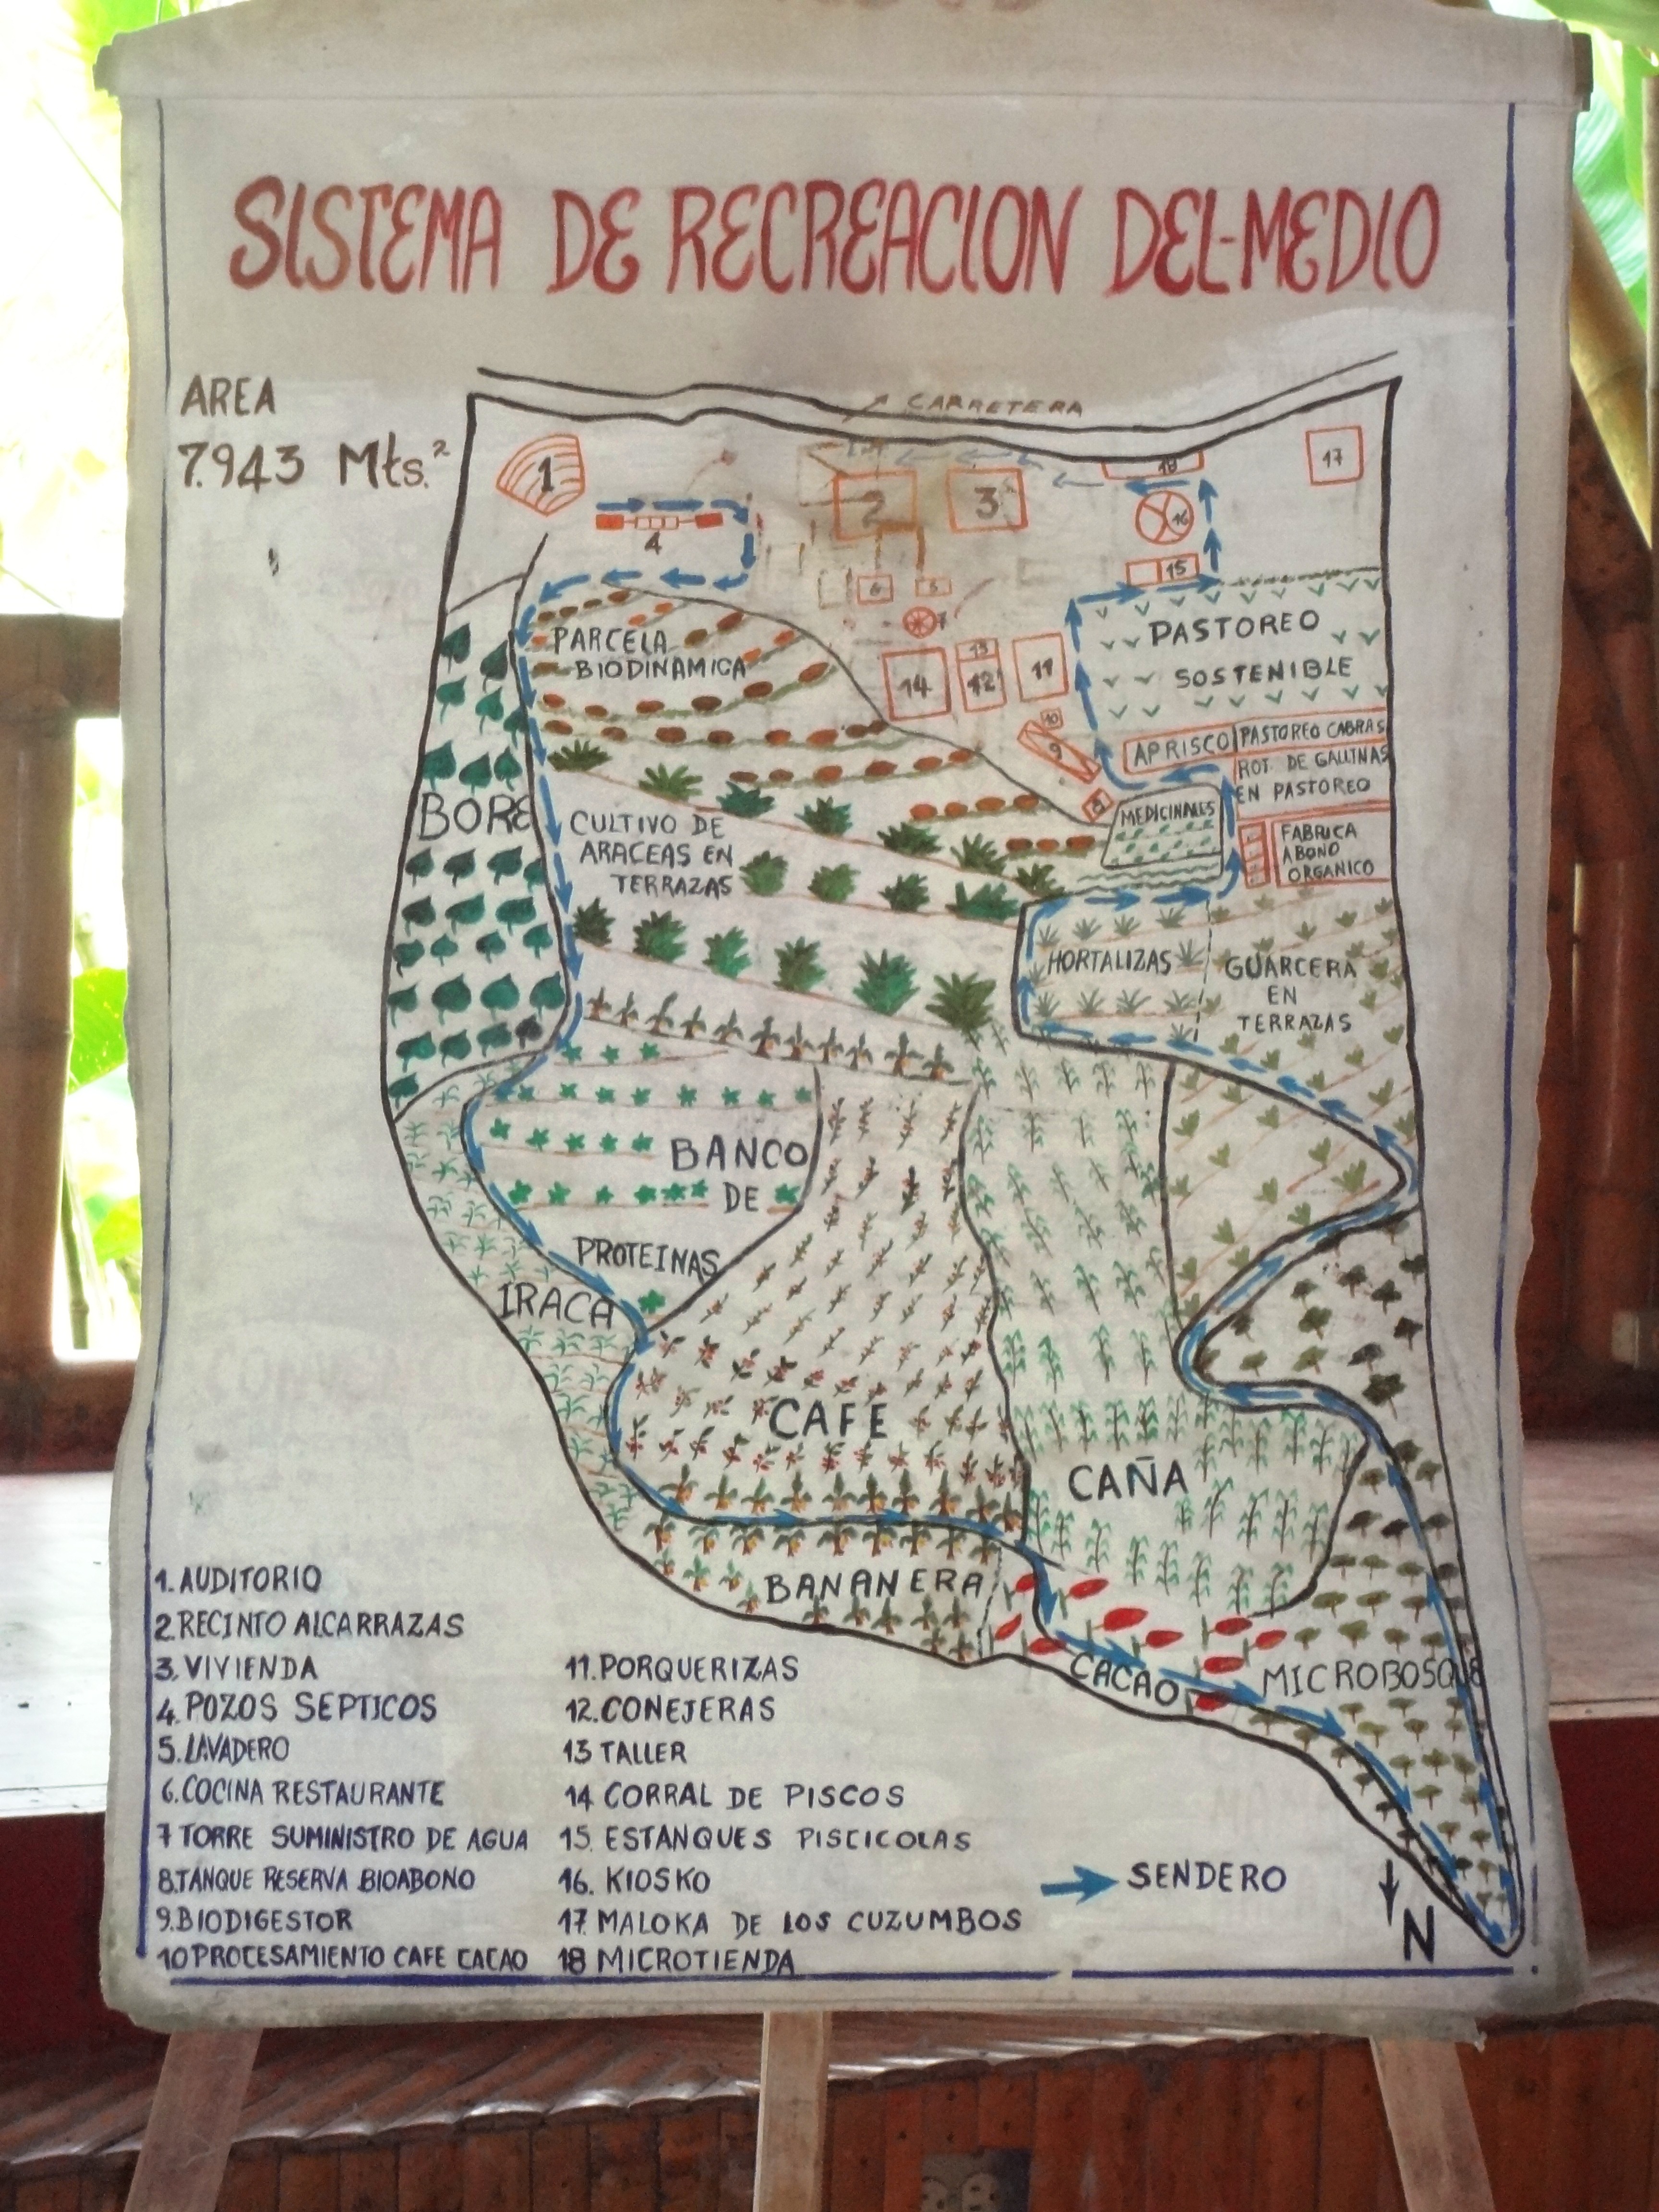 SISTEMA DE RECREACION DEL-MEDIO
AREA
7.943 Mts.²
CARRETERA
1
2
3
18
17
16
4
15
6
5
7
PARCELA
BIODINAMICA
PASTOREO
SOSTENIBLE
14
13
12
11
10
9
8
APRISCO
PASTOREO CABRAS
ROT. DE GALLINAS
EN PASTOREO
MEDICINALES
FABRICA
ABONO
ORGANICO
BORE
CULTIVO DE
ARACEAS EN
TERRAZAS
HORTALIZAS
GUARCERA
EN
TERRAZAS
BANCO
DE
PROTEINAS
IRACA
CAFE
CAÑA
BANANERA
CACAO
MICROBOSQUE
1. AUDITORIO
2. RECINTO ALCARRAZAS
3. VIVIENDA
4. POZOS SEPTICOS
5. LAVADERO
6. COCINA RESTAURANTE
7 TORRE SUMINISTRO DE AGUA
8. TANQUE RESERVA BIOABONO
9. BIODIGESTOR
10 PROCESAMIENTO CAFE CACAO
11. PORQUERIZAS
12. CONEJERAS
13 TALLER
14 CORRAL DE PISCOS
15. ESTANQUES PISCICOLAS
16. KIOSKO
17. MALOKA DE LOS CUZUMBOS
18 MICROTIENDA
SENDERO
N